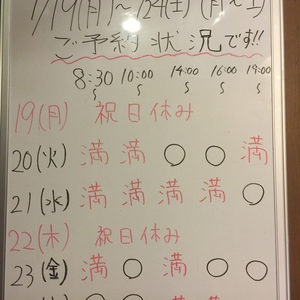 7/19(月)~7/24(土) (月~土)
ご予約状況です!!
8:30~ 10:00~ 14:00~ 16:00~ 19:00~
19(月) 祝日休み
20(火) 満 満 ○ ○ 満
21(水) 満 満 満 満 ○
22(木) 祝日休み
23(金) 満 ○ 満 ○ ○